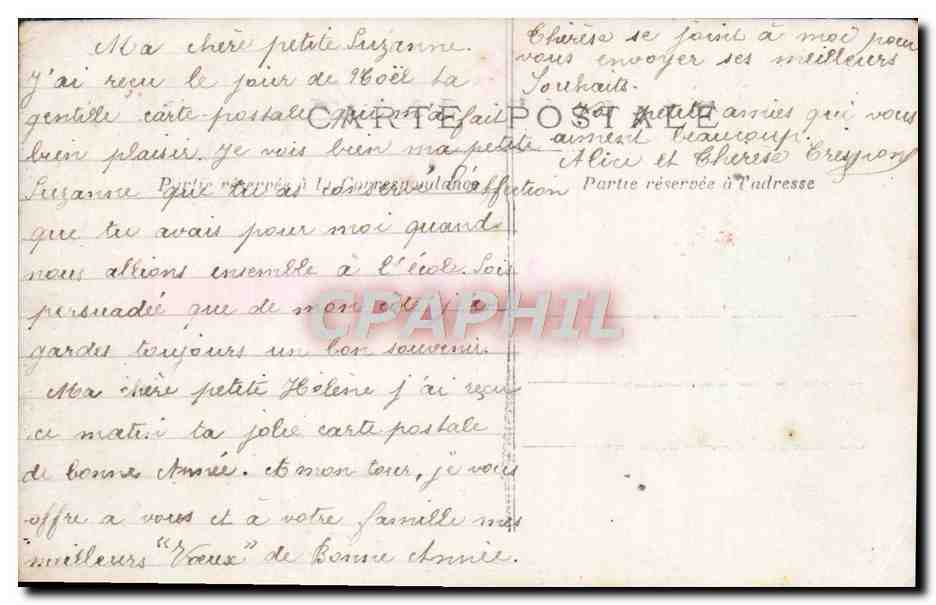 Ma chère petite Suzanne.
J'ai reçu le jour de Noël ta
gentille carte-postale qui m'a fait
bien plaisir. Je vois bien ma petite
Suzanne que tu as conservé l'affection
que tu avais pour moi quand
nous allions ensemble à l'école. Sois
persuadée que de mon côté j'
gardes toujours un bon souvenir.
Ma chère petite Hélène j'ai reçu
ce matin ta jolie carte postale
de bonne Année. A mon tour, je vous
offre a vous et à votre famille mes
meilleurs "Voeux" de Bonne Année.
Thérèse se joint à moi pour
vous envoyer ses meilleurs
Souhaits.
petites amies qui vous
aiment beaucoup.
Alice et Thérèse
CARTE POSTALE
Partie réservée à la Correspondance
Partie réservée à l'adresse
CPAPHIL